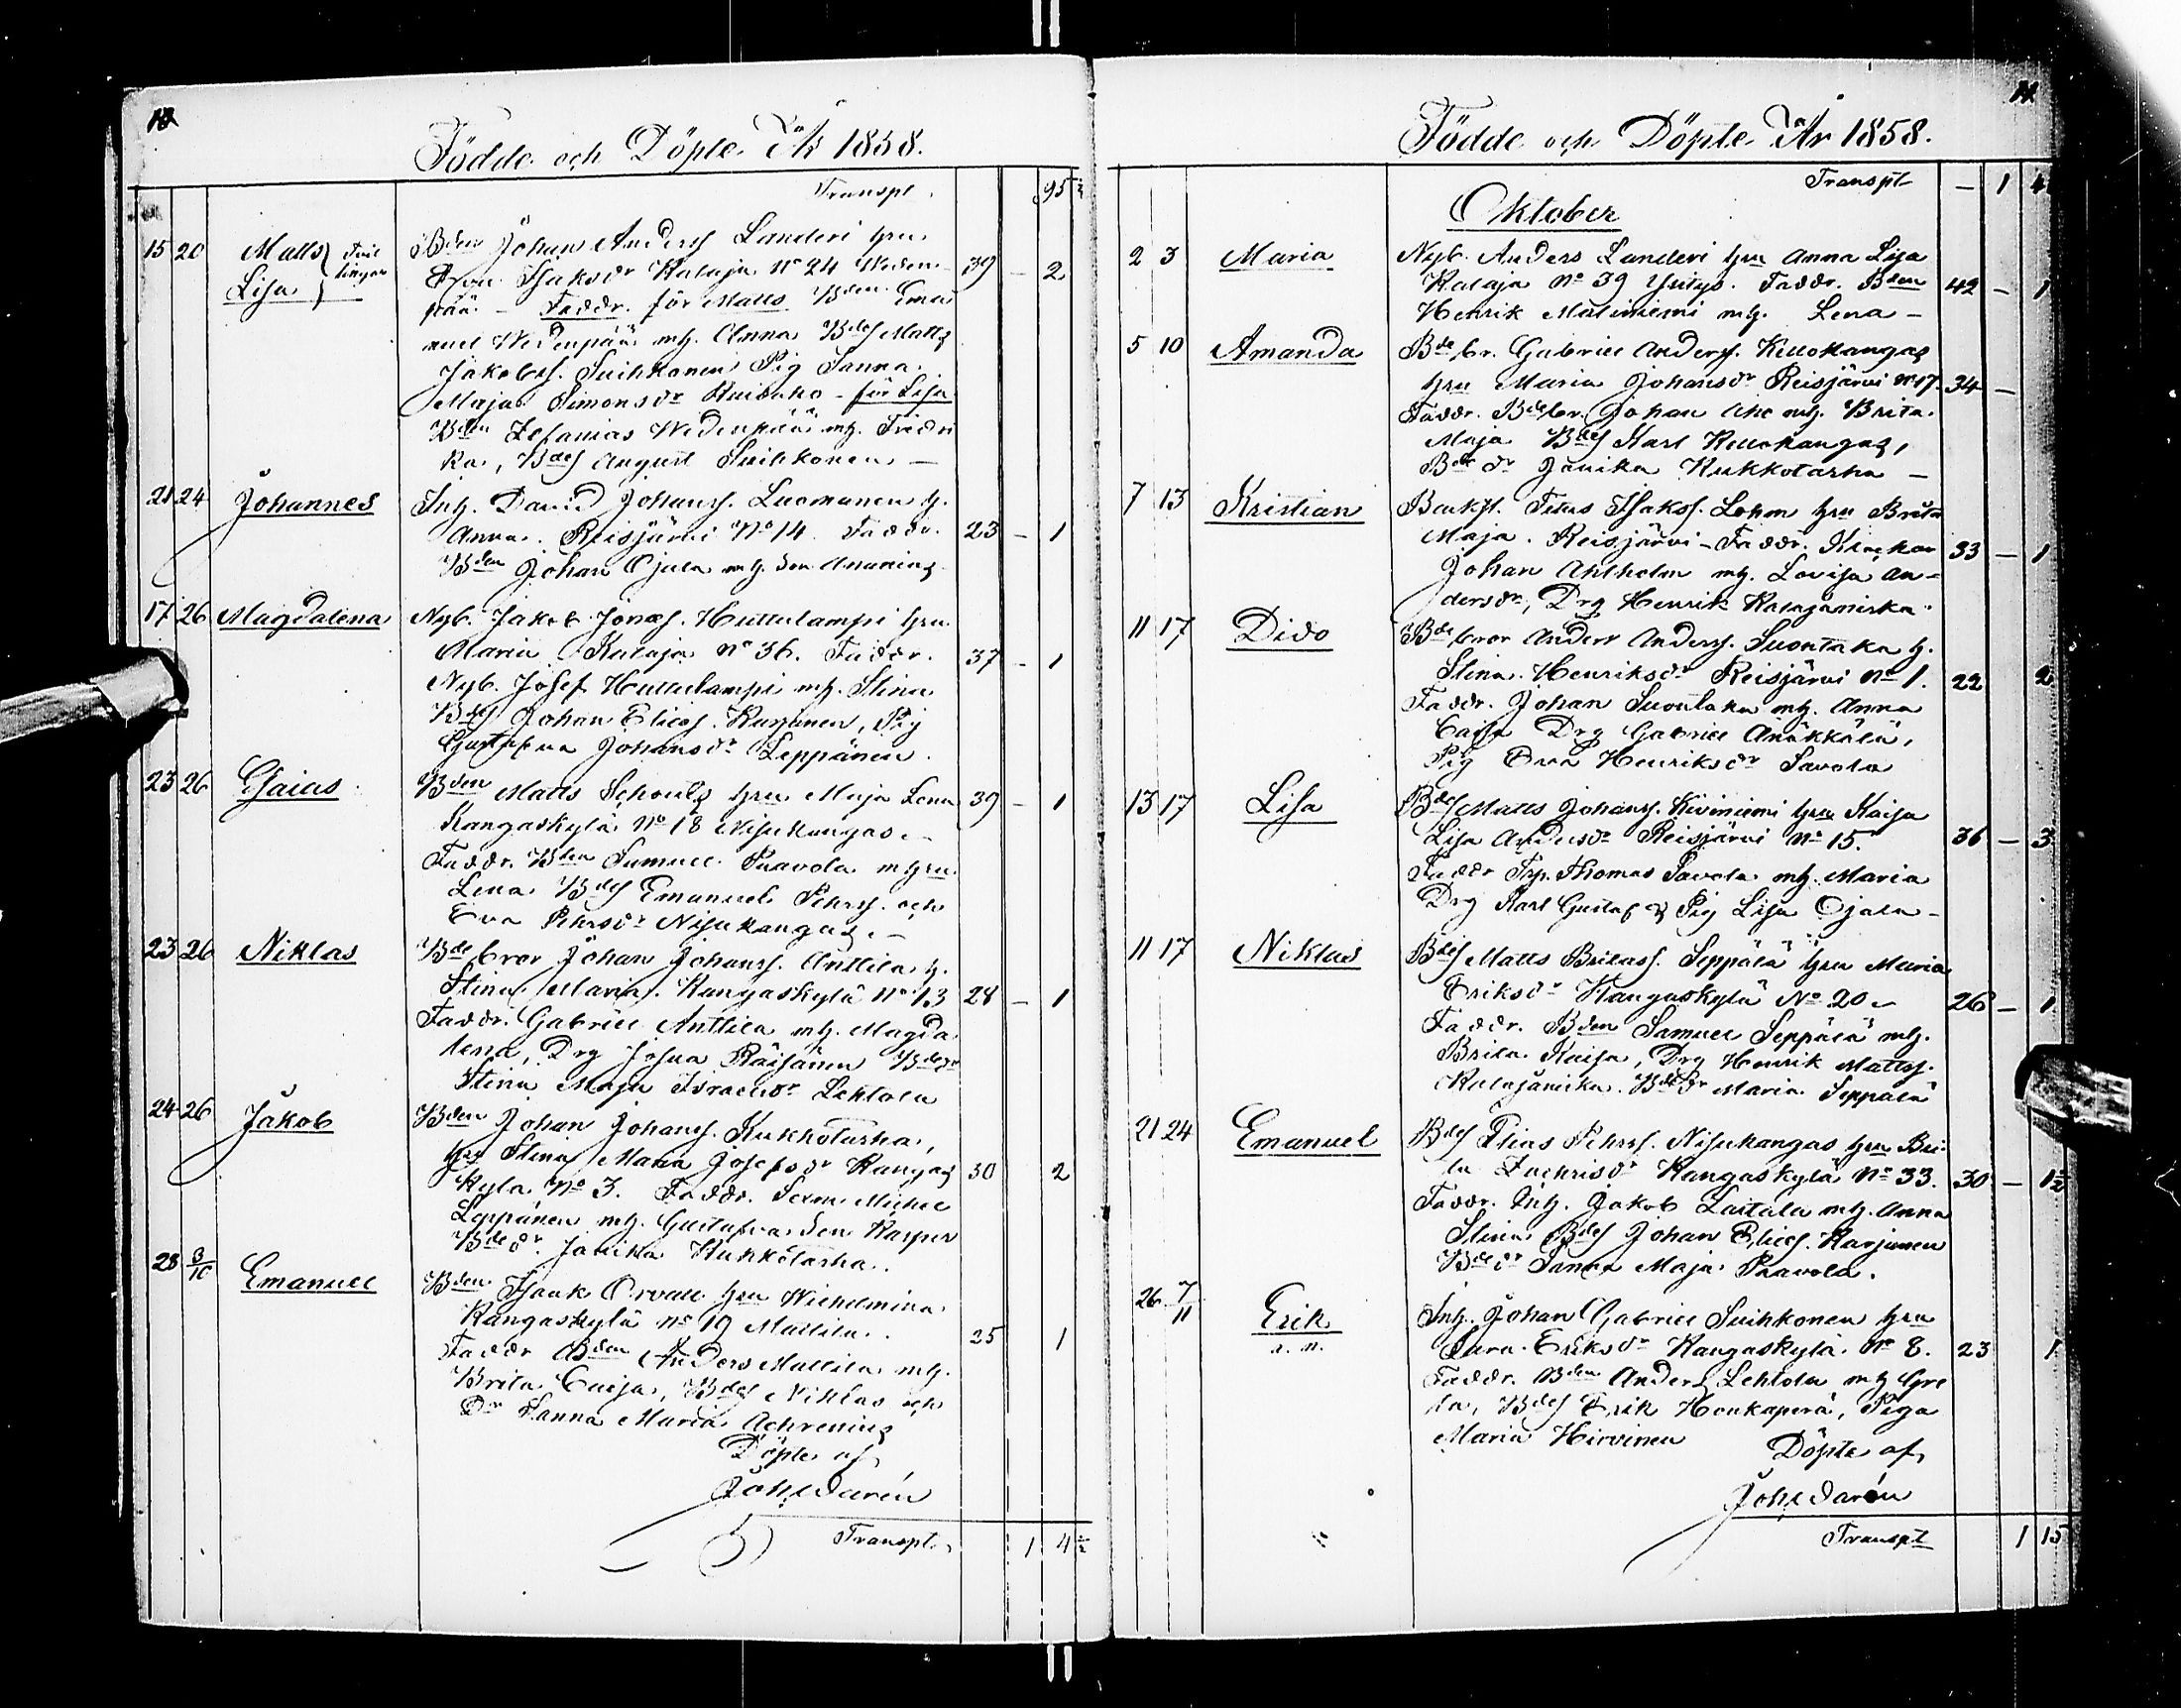 Födde och Döpte År 1858.
Transpt. 95 ½
15 20 Matts Lisa } Tvillingar Bden Johan Anderss Landeri hru
Isaksdr Kalaja No 24 Weden- 39 - 2
pää. - Faddr. för Matts Bden Ema
nuel Wedenpää mh. Anna Bdes Matts
Jakobss. Suihkonen Pig Sanna
Maja Simonsdr - för Lisa
Bden Zefanias Wedenpää mh. Fredri
ka, Bdes August Suihkonen -
21 24 Johannes Inh. David Johanss. Luomanen h.
Anna. Reisjärvi No 14. Faddr. 23 - 1
Bden Johan Ojala mh.
17 26 Magdalena Nyb. Jakob Jonass. Huttulampi hru
Maria Kalaja No 36. Faddr. 37 - 1
Nyb. Josef Huttulampi mh. Stina
Bdes Johan Eliess. Karjunen, Pig
Gustafva Johansdr Leppänen.
23 26 Esaias Bden Matts Schoultz hru Maja Lena 39 - 1
Kangaskylä No 18 Nisukangas. -
Faddr. Bden Samuel Paavola m hru
Lena Bdes Emanuel Pehrss. och
Eva Pehrsdr Nisukangas. -
23 26 Niklas Bde bror Johan Johanss. Anttila h.
Stina Maria. Kangaskylä No 13 28 - 1
Faddr. Gabriel Anttila mh. Magda
lena, Drg Josua Räisänen Bdedr
Stina Maja Israelsdr Lehtola
24 26 Jakob Bden Johan Johanss. Kukkotarha,
hru Stina Maria Josefsdr Kangas 30 2
kylä No 3. Faddr. Michel
Leppänen mh. Gustafva
Bdedr. Janika Kukkotarha.
28 3/10 Emanuel Bden Isaak Orvall hru Wilhelmina
Kangaskylä No 19 Mattila. 25 1
Faddr Bden Anders Mattila mh.
Brita Caisa, Bdes Niklas och
Dr Sanna Maria
Döpte af
Joh. Warén
Transpt. 1 4 ½
Födde och Döpte År 1858.
Transpt - 1 4
Oktober
2 3 Maria Nyb. Anders Landeri hru Anna Lisa
Kalaja No 39 Yritys. Faddr. Bden 42 - 1
Henrik Maliniemi mh. Lena -
5 10 Amanda Bde br. Gabriel Anderss. Kellokangas
hru Maria Johansdr Reisjärvi No 17. 34 -
Faddr. Bdebr. Johan Aho mh. Brita
Maja Bdes Karl Kellokangas,
Bdedr Janika Kukkotarha -
7 13 Kristian Titus Isakss. Lohm hru Brita
Maja. Reisjärvi - Faddr. Klockar 33 - 1
Johan Ahlholm mh. Lovisa An-
dersdr, Drg Henrik Kalajaniska
11 17 Dido Bde bror Anders Anderss. Suontaka h.
Stina Henriksdr Reisjärvi No 1. 22 2
Faddr. Johan Suontaka mh. Anna
Caisa Drg Gabriel Änäkkälä,
Pig Eva Henriksdr Savola
13 17 Lisa Bdes Matts Johanss. Kiviniemi hru Kaisa
Lisa Andersdr Reisjärvi No 15. 36 - 3
Faddr Thomas Savola mh. Maria
Drg Karl Gustaf & Pig Lisa Ojala -
11 17 Niklas Bdes Matts Britass. Seppälä hru Maria
Eriksdr Kangaskylä No 20 - 26 - 1
Faddr. Bden Samuel Seppälä mh.
Brita Kaisa, Drg Henrik Mattss.
Kalajaniska. Bdedr Maria Seppälä
21 24 Emanuel Bdes Elias Pehrss. Nisukangas hru Bri
ta Zachrisdr Kangaskylä No 33. 30 - 1 ½
Faddr. Inh. Jakob Laitala mh. Anna
Stina Bdes Johan Eliess. Karjunen
Bdedr Sanna Maja Paavola.
26 7/11 Erik Inh. Johan Gabriel Suihkonen hru
Sara Eriksdr Kangaskylä No 8. 23 1
Faddr. Bden Anders Lehtola mh Gre
ta, Bdes Erik Honkaperä, Piga
Maria Hirvinen Döpte af
Joh. Warén
Transpt 1 15